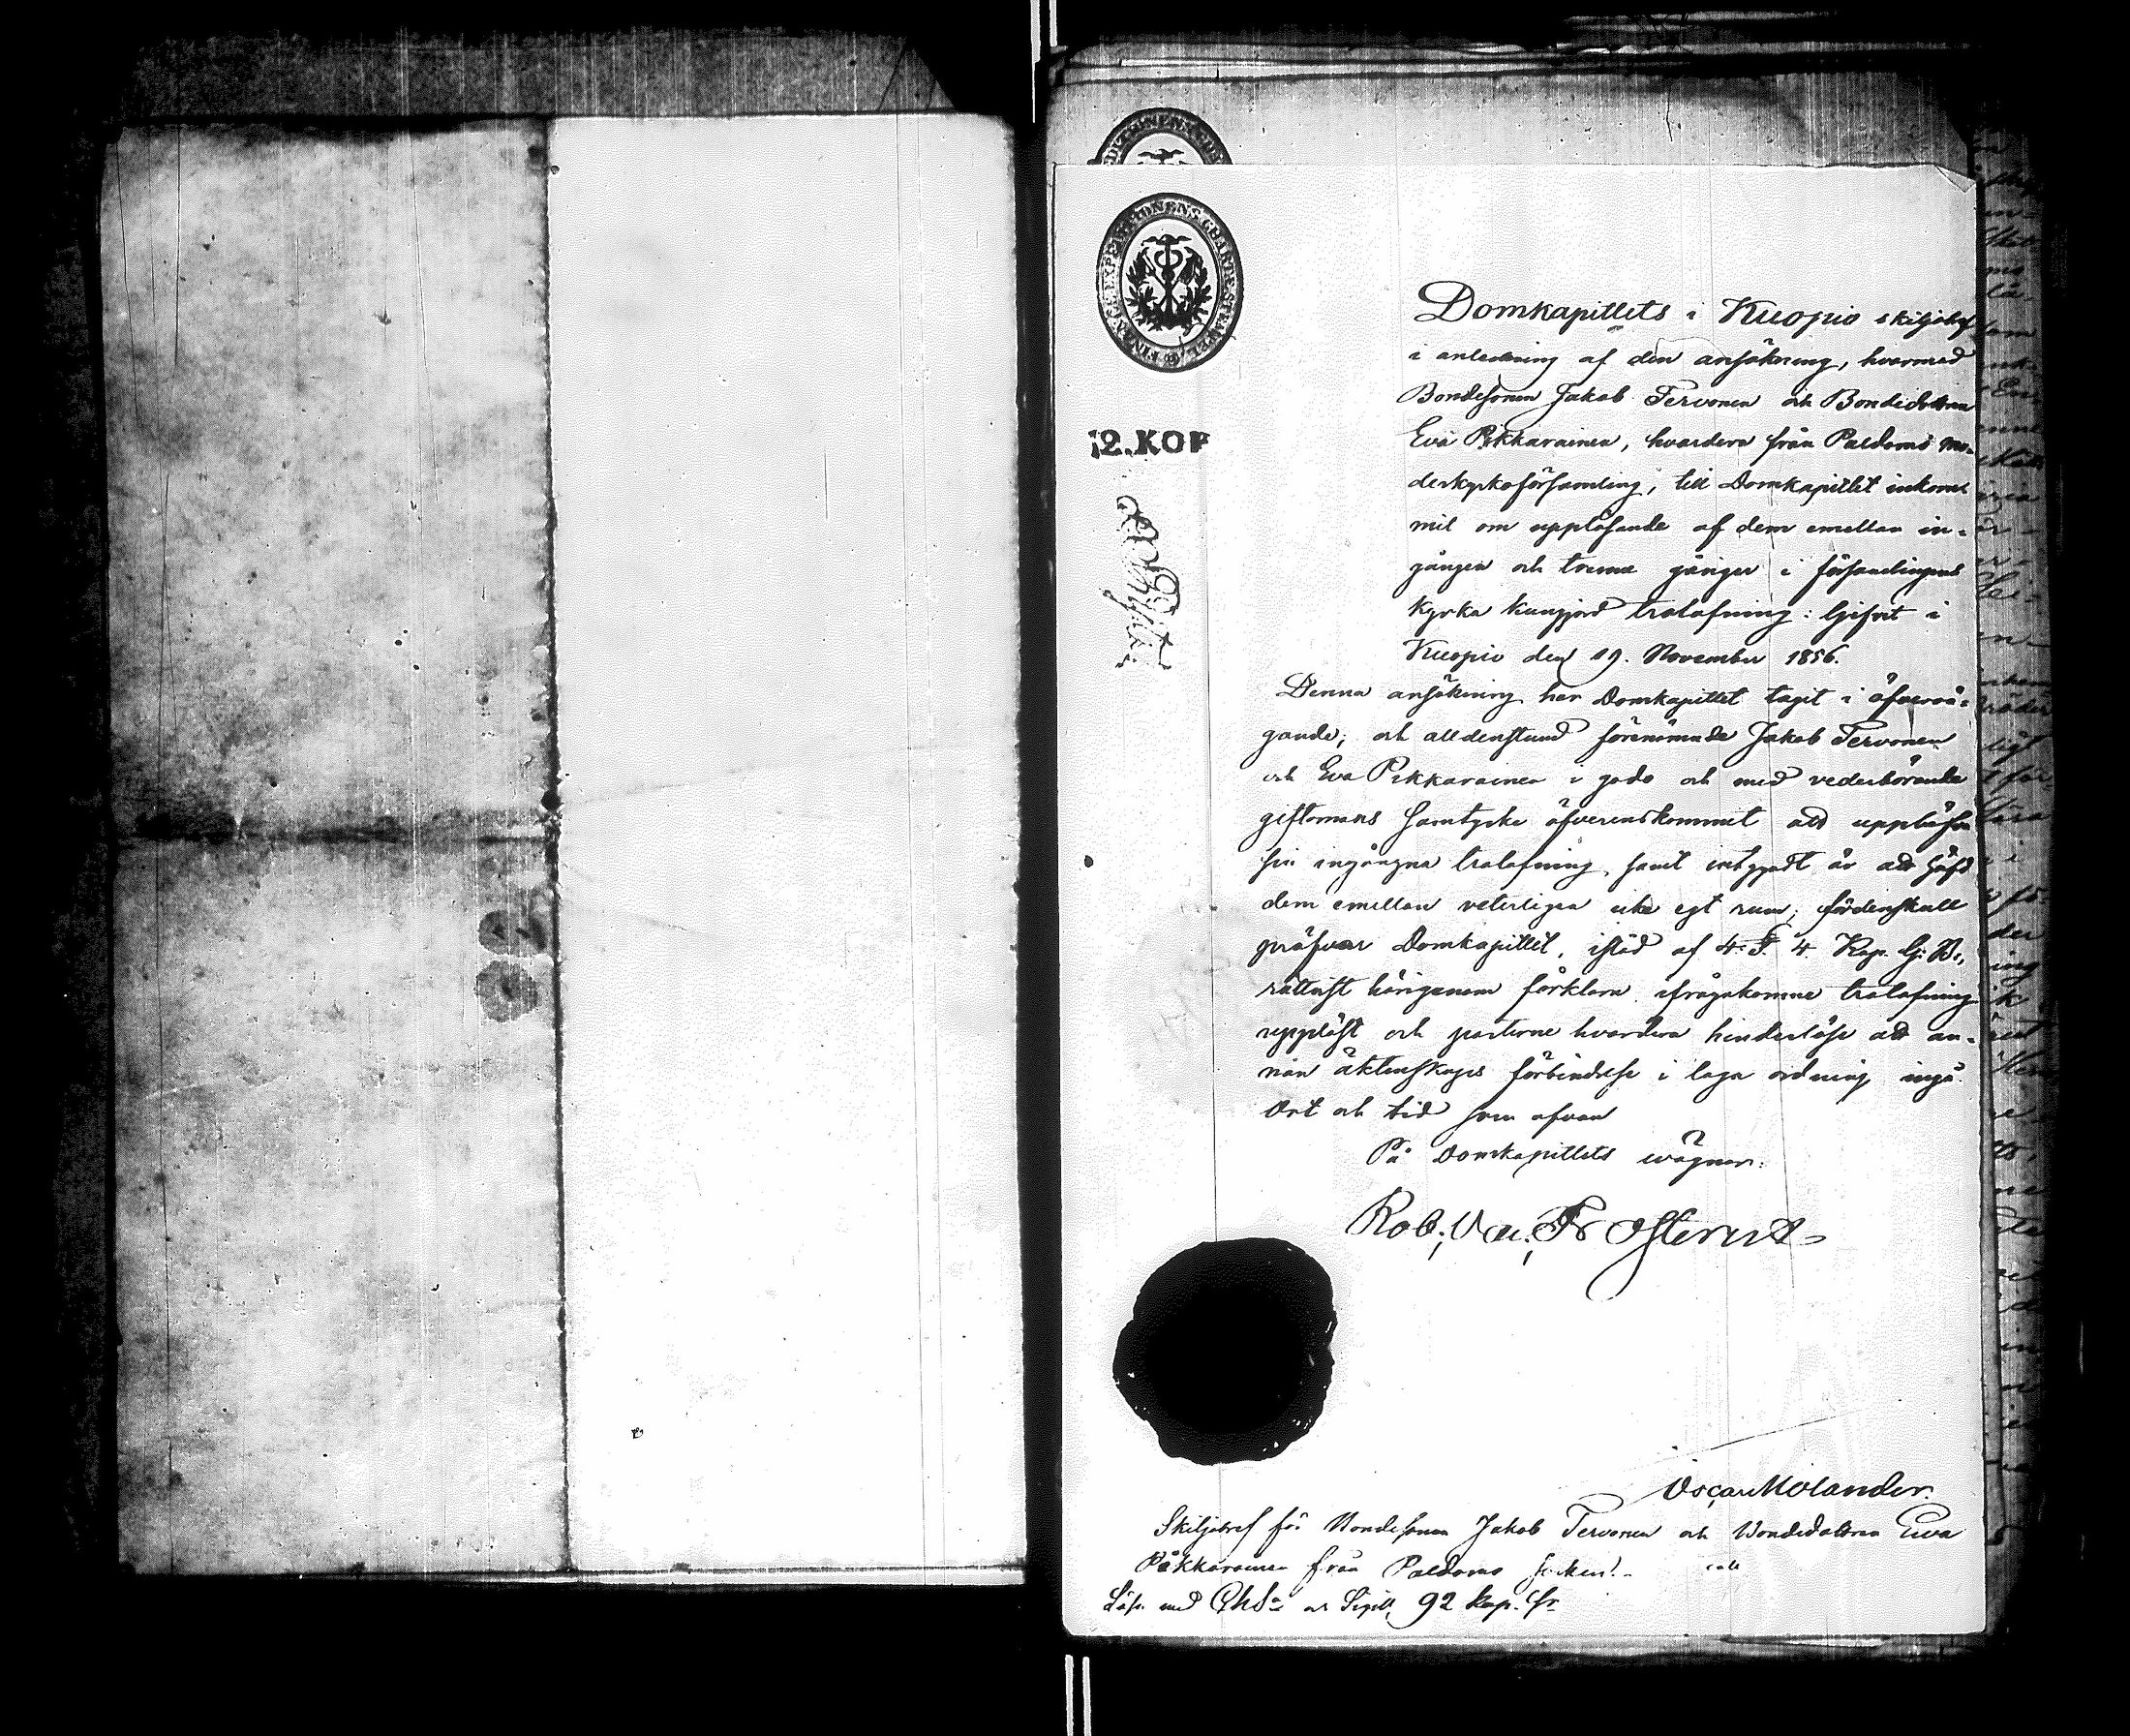 FINANCE EXPEDITIONENS CHARTÆ STEMPEL
Domkapitlets i Kuopio skiljobref
i anledning af den ansökning, hvarmed
Bondesonen Jakob Tervonen och Bondedottren
Eva Pekkarainen, hvardera från Paldamo mo-
derkyrkoförsamling, till Domkapitlet inkom-
mit om upplösande af dem emellan in-
gången och trenne gånger i församlingens
Kyrka kungjord trolofning: Gifvit i
Kuopio den 19. November 1856.
12. KOP
Denna ansökning har Domkapitlet tagit i öfvervä-
gande; och alldenstund förenämnde Jakob Tervonen
och Eva Pekkarainen i godo och med vederbörande
giftomans samtycke öfverenskommit att upplösa
sin ingångna trolofning, samt intygadt är att häfd
dem emellan veterligen icke egt rum; fördenskull
pröfvar Domkapitlet, i stöd af 4. §. 4. Kap. G: B.,
rättvist härigenom förklara ifrågakomne trolofning
upplöst och parterne hvardera hinderlöse att an-
nan äktenskaps förbindelse i laga ordning ingå.
Ort och tid som ofvan
På Domkapitlets wägnar:
Rob. Val. Frosterus
Oscar Molander.
Skiljobref för Bondesonen Jakob Tervonen och Bondedottren Ewa
Päkkarainen från Paldamo socken.
Lösn med och Sigill, 92 kop. Sr